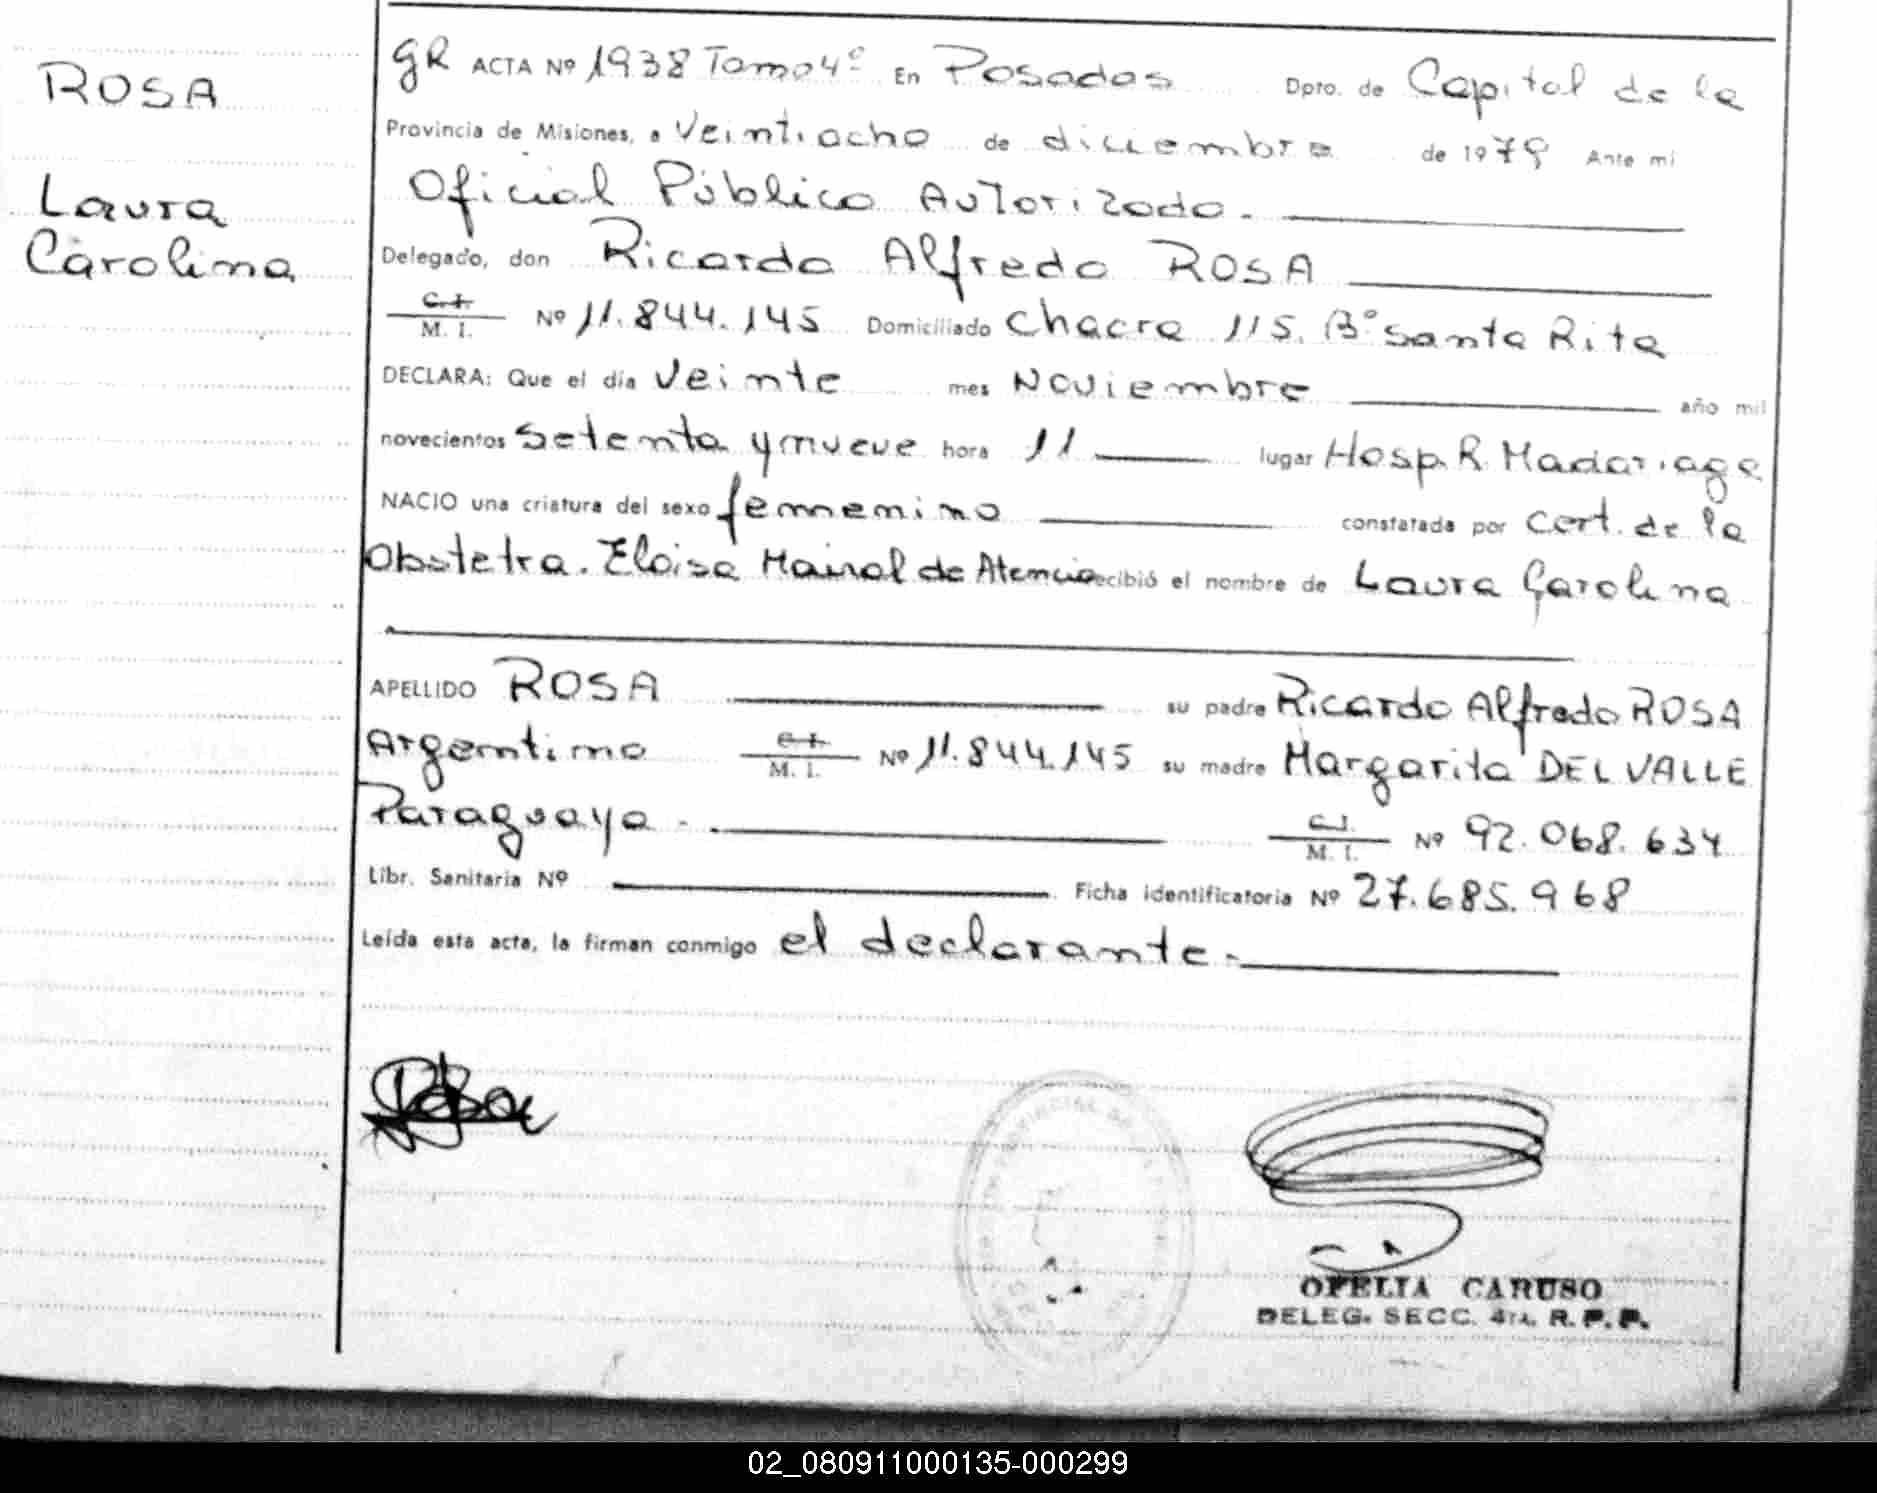 ROSA
Laura
Carolina
GR ACTA Nº 1938 Tomo 4º En Posadas Dpto. de Capital de la
Provincia de Misiones, a Veintiocho de diciembre de 1979 Ante mí
Oficial Público Autorizado.
Delegado, don Ricardo Alfredo ROSA
C. I.
M. I. Nº 11.844.145 Domiciliado Chacra 115. Bº Santa Rita
DECLARA: Que el día Veinte mes Noviembre año mil
novecientos Setenta y nueve hora 11 lugar Hosp. R. Madariaga
NACIO una criatura del sexo femenino constatada por Cert. de la
Obstetra. Eloisa Mairal de Atencio recibió el nombre de Laura Carolina
APELLIDO ROSA su padre Ricardo Alfredo ROSA
Argentino C. I.
M. I. Nº 11.844.145 su madre Margarita DEL VALLE
Paraguaya. C. I.
M. I. Nº 92.068.634
Libr. Sanitaria Nº Ficha identificatoria Nº 27.685.968
Leída esta acta, la firman conmigo el declarante.
OFELIA CARUSO
DELEG. SECC. 4ta. R.P.P.
02_080911000135-000299